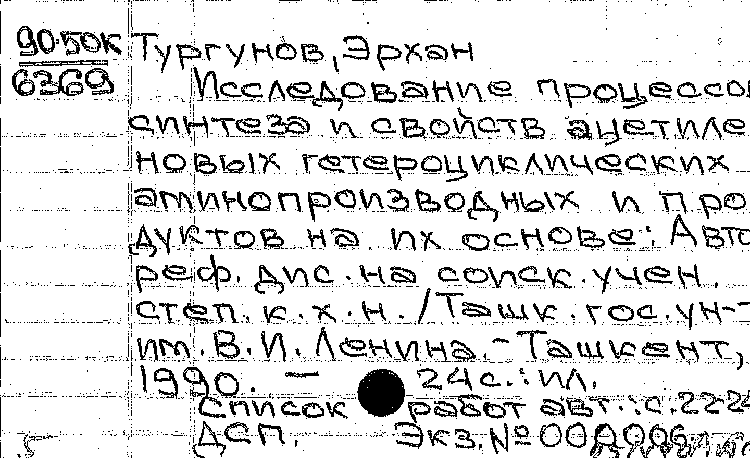 90-50К Тургунов, Эрхан
6369 Исследование процессов
синтеза и свойств ацетиле
новых гетероциклических
аминопроизводных и про
дуктов на их основе: Авто
реф. дис. на соиск. учен.
степ. к.х.н. / Ташк. гос. ун-т
им. В.И. Ленина. - Ташкент,
1990. — 24 с.: ил.
Список работ авт.: с. 22-24
ДСП. Экз. № 000006